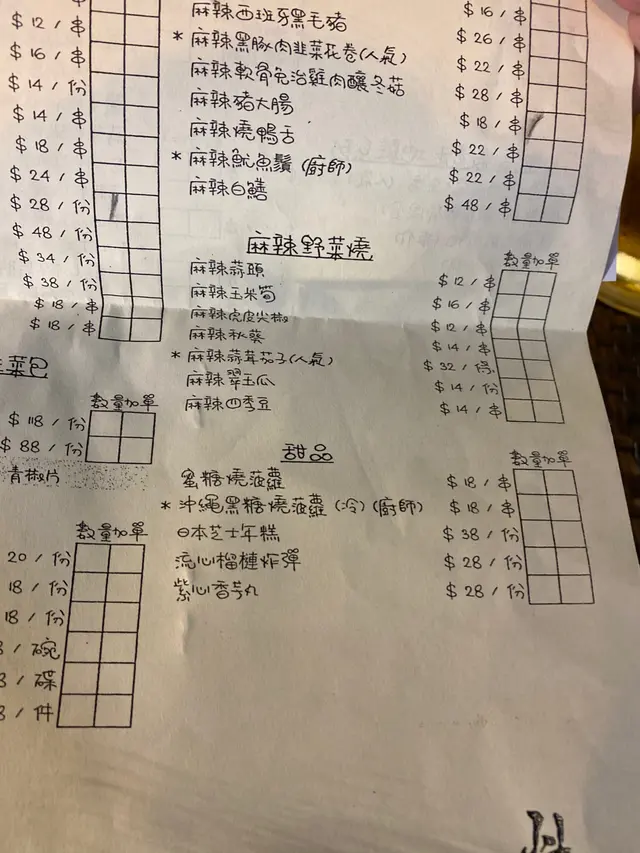 $ 12 / 串
$ 16 / 串
$ 14 / 份
$ 14 / 串
$ 18 / 串
$ 24 / 串
$ 28 / 份
$ 48 / 份
$ 34 / 份
$ 38 / 份
$ 18 / 串
$ 18 / 串
菜包
數量加單
$ 118 / 份
$ 88 / 份
青椒片
數量加單
20 / 份
18 / 份
18 / 份
8 / 碗
8 / 碟
8 / 件
$ 16 / 串
麻辣西班牙黑毛豬 $ 26 / 串
* 麻辣黑豚肉韭菜花卷(人氣) $ 22 / 串
麻辣軟骨免治雞肉釀冬菇 $ 28 / 串
麻辣豬大腸 $ 18 / 串
麻辣燒鴨舌 $ 22 / 串
* 麻辣魷魚鬚 (廚師) $ 22 / 串
麻辣白鱔 $ 48 / 串
麻辣野菜燒 數量加單
麻辣蒜頭 $ 12 / 串
麻辣玉米筍 $ 16 / 串
麻辣虎皮尖椒 $ 12 / 串
麻辣秋葵 $ 14 / 串
* 麻辣蒜茸茄子(人氣) $ 32 / 份
麻辣翠玉瓜 $ 14 / 份
麻辣四季豆 $ 14 / 串
甜品 數量加單
蜜糖燒菠蘿 $ 18 / 串
* 沖繩黑糖燒菠蘿 (冷) (廚師) $ 18 / 串
日本芝士年糕 $ 38 / 份
流心榴槤炸彈 $ 28 / 份
紫心香芋丸 $ 28 / 份